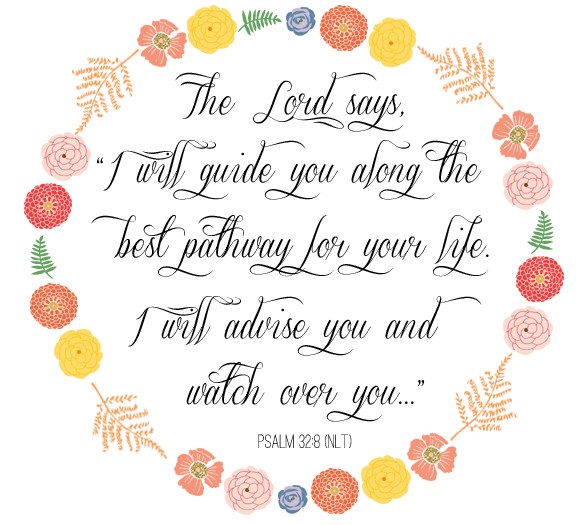 The Lord says,
“I will guide you along the
best pathway for your life.
I will advise you and
watch over you...”
PSALM 32:8 (NLT)